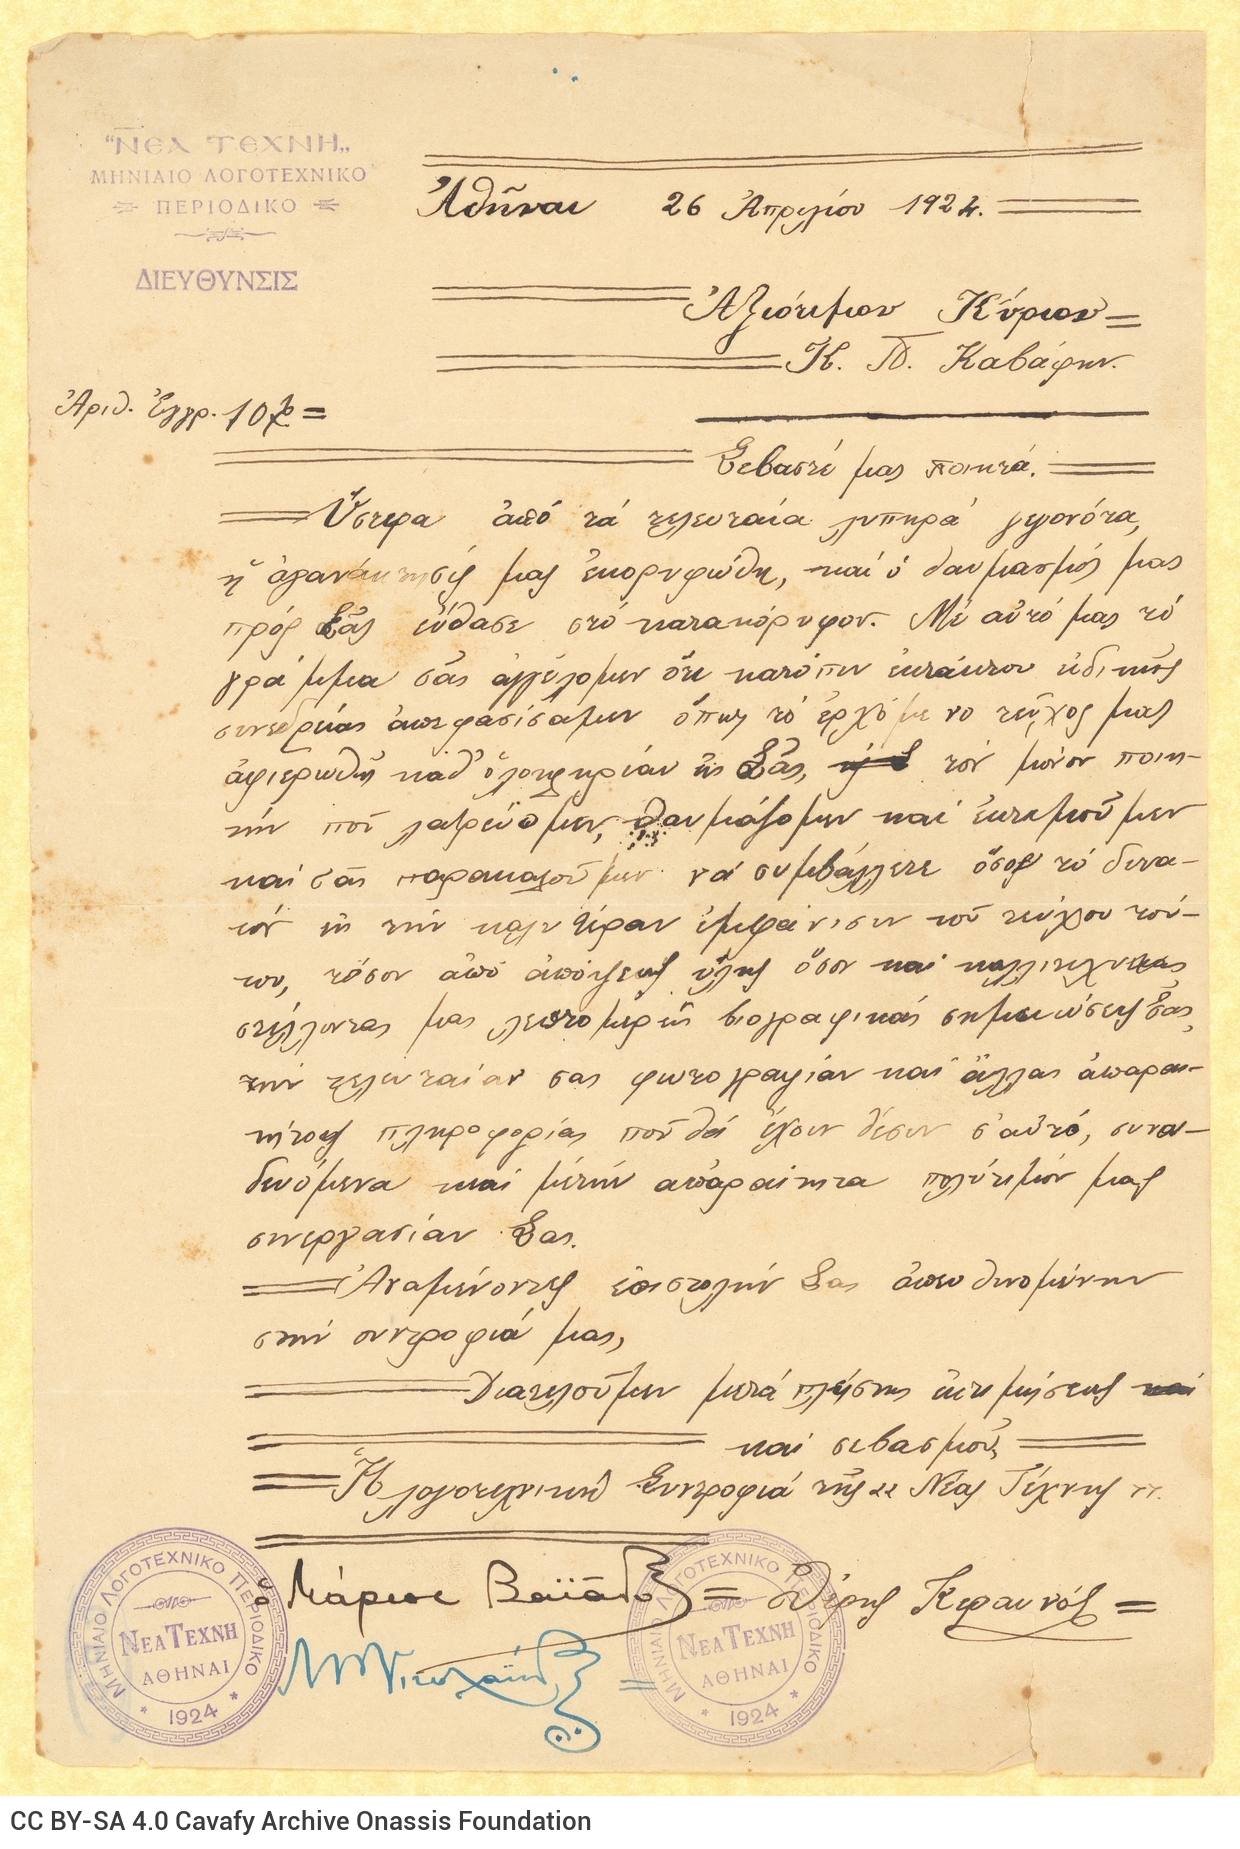 "ΝΕΑ ΤΕΧΝΗ"
ΜΗΝΙΑΙΟ ΛΟΓΟΤΕΧΝΙΚΟ
ΠΕΡΙΟΔΙΚΟ
ΔΙΕΥΘΥΝΣΙΣ
Ἀθῆναι 26 Ἀπριλίου 1924.
Ἀξιότιμον Κύριον
Κ. Π. Καβάφην.
Ἀριθ. Ἐγγρ. 107
Σεβαστέ μας ποιητά.
Ὕστερα ἀπό τά τελευταῖα λυπηρά γεγονότα,
ἡ ἀγανάκτησίς μας ἐκορυφώθη, καί ὁ θαυμασμός μας
πρός Σᾶς ἔφθασε στό κατακόρυφον. Μέ αὐτό μας τό
γράμμα σᾶς ἀγγέλομεν ὅτι κατόπιν ἐκτάκτου εἰδικῆς
συνεδρίας ἀπεφασίσαμεν ὅπως τό ἐρχόμενο τεῦχος μας
ἀφιερωθῆ καθ' ὁλοκληρίαν εἰς Σᾶς, τόν μόνον ποιη-
τήν πού λατρεύομεν, θαυμάζομεν καί ἐκτιμοῦμεν
καί σᾶς παρακαλοῦμεν νά συμβάλλετε ὅσον τό δυνα-
τόν εἰς τήν καλυτέραν ἐμφάνισιν τοῦ τεύχου τού-
του, τόσον ἀπό ἀπόψεως ὕλης ὅσον καί καλλιτεχνίας
στέλλοντας μας λεπτομερεῖς βιογραφικάς σημειώσεις Σας,
τήν τελευταίαν σας φωτογραφίαν καί ἄλλας ἀπαραι-
τήτους πληροφορίας πού θά ἔχουν θέσιν σ' αὐτό, συνο-
δευόμενα καί μέ τήν ἀπαραίτητα πολύτιμόν μας
συνεργασίαν Σας.
Ἀναμένοντες ἐπιστολήν Σας ἀπευθυνομένην
στήν συντροφιά μας,
Διατελοῦμεν μετά πλείστης ἐκτιμήσεως και
καί σεβασμοῦ,
Ἡ λογοτεχνική Συντροφιά τῆς "Νέας Τέχνης".
Μάριος Βαϊάνος Κεραυνός
ΜΗΝΙΑΙΟ ΛΟΓΟΤΕΧΝΙΚΟ ΠΕΡΙΟΔΙΚΟ
ΝΕΑ ΤΕΧΝΗ
ΑΘΗΝΑΙ
* 1924 *
ΜΗΝΙΑΙΟ ΛΟΓΟΤΕΧΝΙΚΟ ΠΕΡΙΟΔΙΚΟ
ΝΕΑ ΤΕΧΝΗ
ΑΘΗΝΑΙ
* 1924 *
CC BY-SA 4.0 Cavafy Archive Onassis Foundation